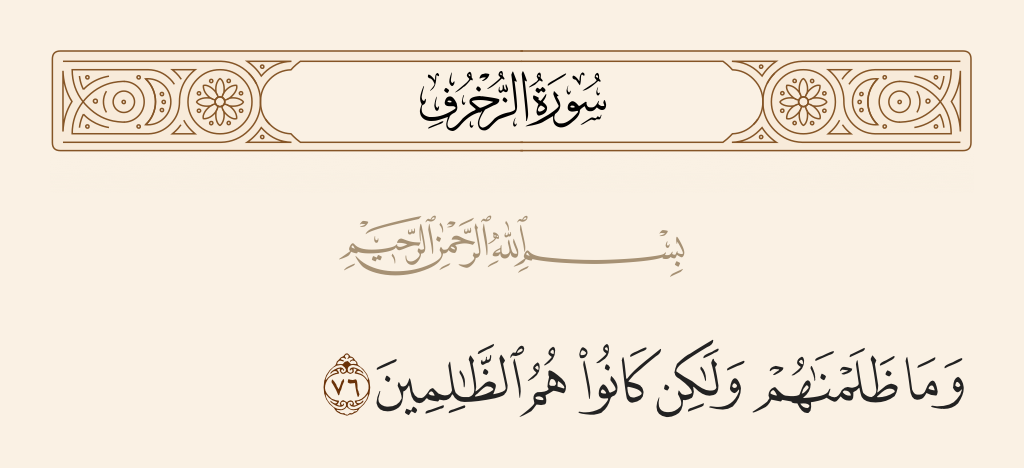 سُورَةُ الزُّخْرُفِ
بِسْمِ ٱللَّهِ ٱلرَّحْمَٰنِ ٱلرَّحِيمِ
وَمَا ظَلَمْنَٰهُمْ وَلَٰكِن كَانُوا۟ هُمُ ٱلظَّٰلِمِينَ ٧٦